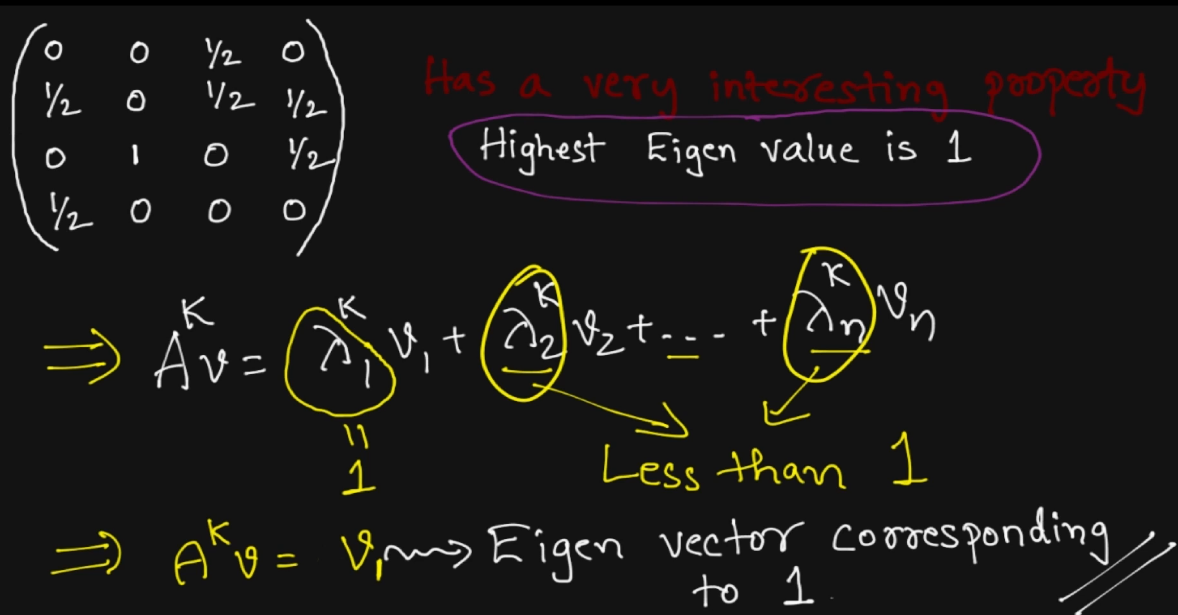 0 0 1/2 0
1/2 0 1/2 1/2
0 1 0 1/2
1/2 0 0 0
Has a very interesting property
Highest Eigen value is 1
⇒ A^K v = λ_1^K v_1 + λ_2^K v_2 + ... + λ_n^K v_n
=
1
Less than 1
⇒ A^K v = v_1 → Eigen vector corresponding
to 1.